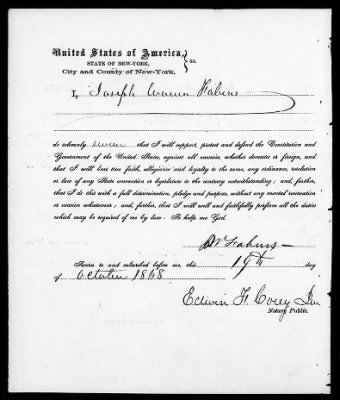 United States of America, } ss.
STATE OF NEW-YORK,
City and County of New-York.
I, Joseph Warren Fabens
do solemnly swear that I will support, protect and defend the Constitution and
Government of the United States, against all enemies, whether domestic or foreign, and
that I will bear true faith, allegiance and loyalty to the same, any ordinance, resolution
or law of any State convention or legislature to the contrary notwithstanding; and, further,
that I do this with a full determination, pledge and purpose, without any mental reservation
or evasion whatsoever; and, further, that I will well and faithfully perform all the duties
which may be required of me by law. So help me God.
J W Fabens
Sworn to and subscribed before me, this 19th day
of October 1868
Edwin F. Corey Jun
Notary Public.